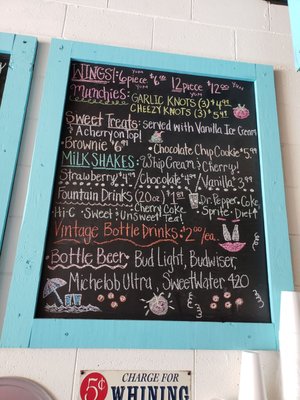 WINGS! 6 piece $6.48 12 piece $12.00
YUM YUM
Munchies: GARLIC KNOTS (3) $4.99
CHEEZY KNOTS (3) $5.49
Sweet Treats: served with Vanilla Ice Cream
& A cherry on Top!
Brownie $6.99 Chocolate Chip Cookie $5.99
MILK SHAKES: Whip Cream & Cherry!
Strawberry $4.99 / Chocolate $4.99 / Vanilla $3.99
Fountain Drinks (20oz) $1.99 Dr. Pepper Coke,
Cherry Coke
Hi-C Sweet & UnSweet Tea Sprite Diet
Vintage Bottle Drinks $2.00/ea.
Bottle Beer: Bud Light, Budwiser,
Michelob Ultra, SweetWater 420
5¢ CHARGE FOR
WHINING